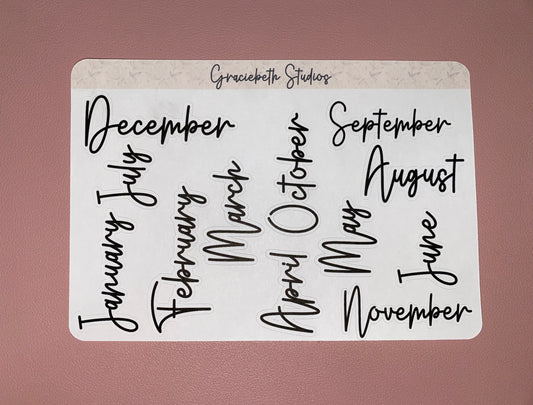 Graciebeth Studios
December
September
July
January
February
March
October
April
May
August
June
November